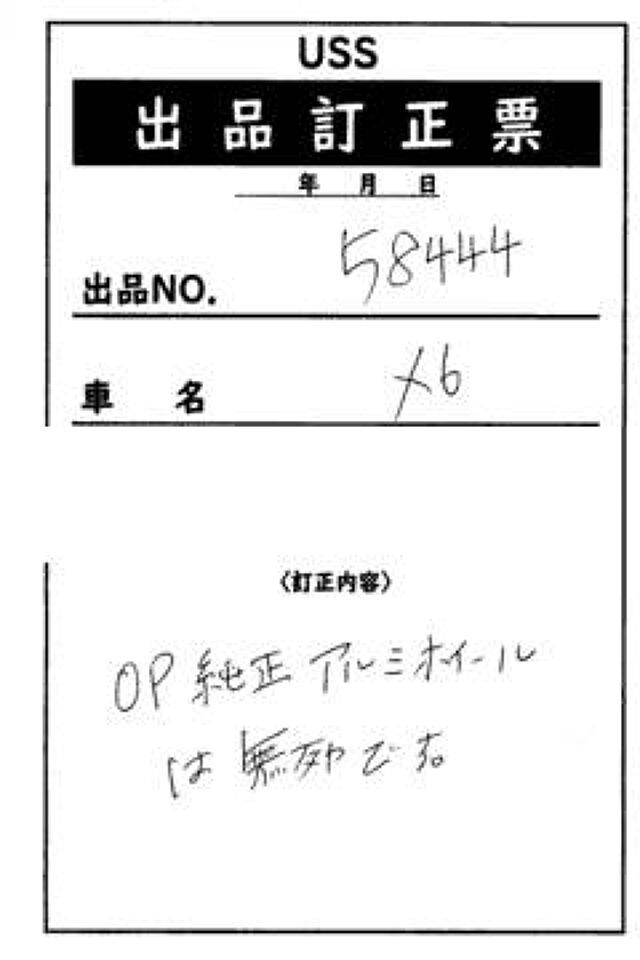 USS
出品訂正票
年 月 日
出品NO. 58444
車名 X6
〈訂正内容〉
OP 純正 アルミホイール
は 無効です